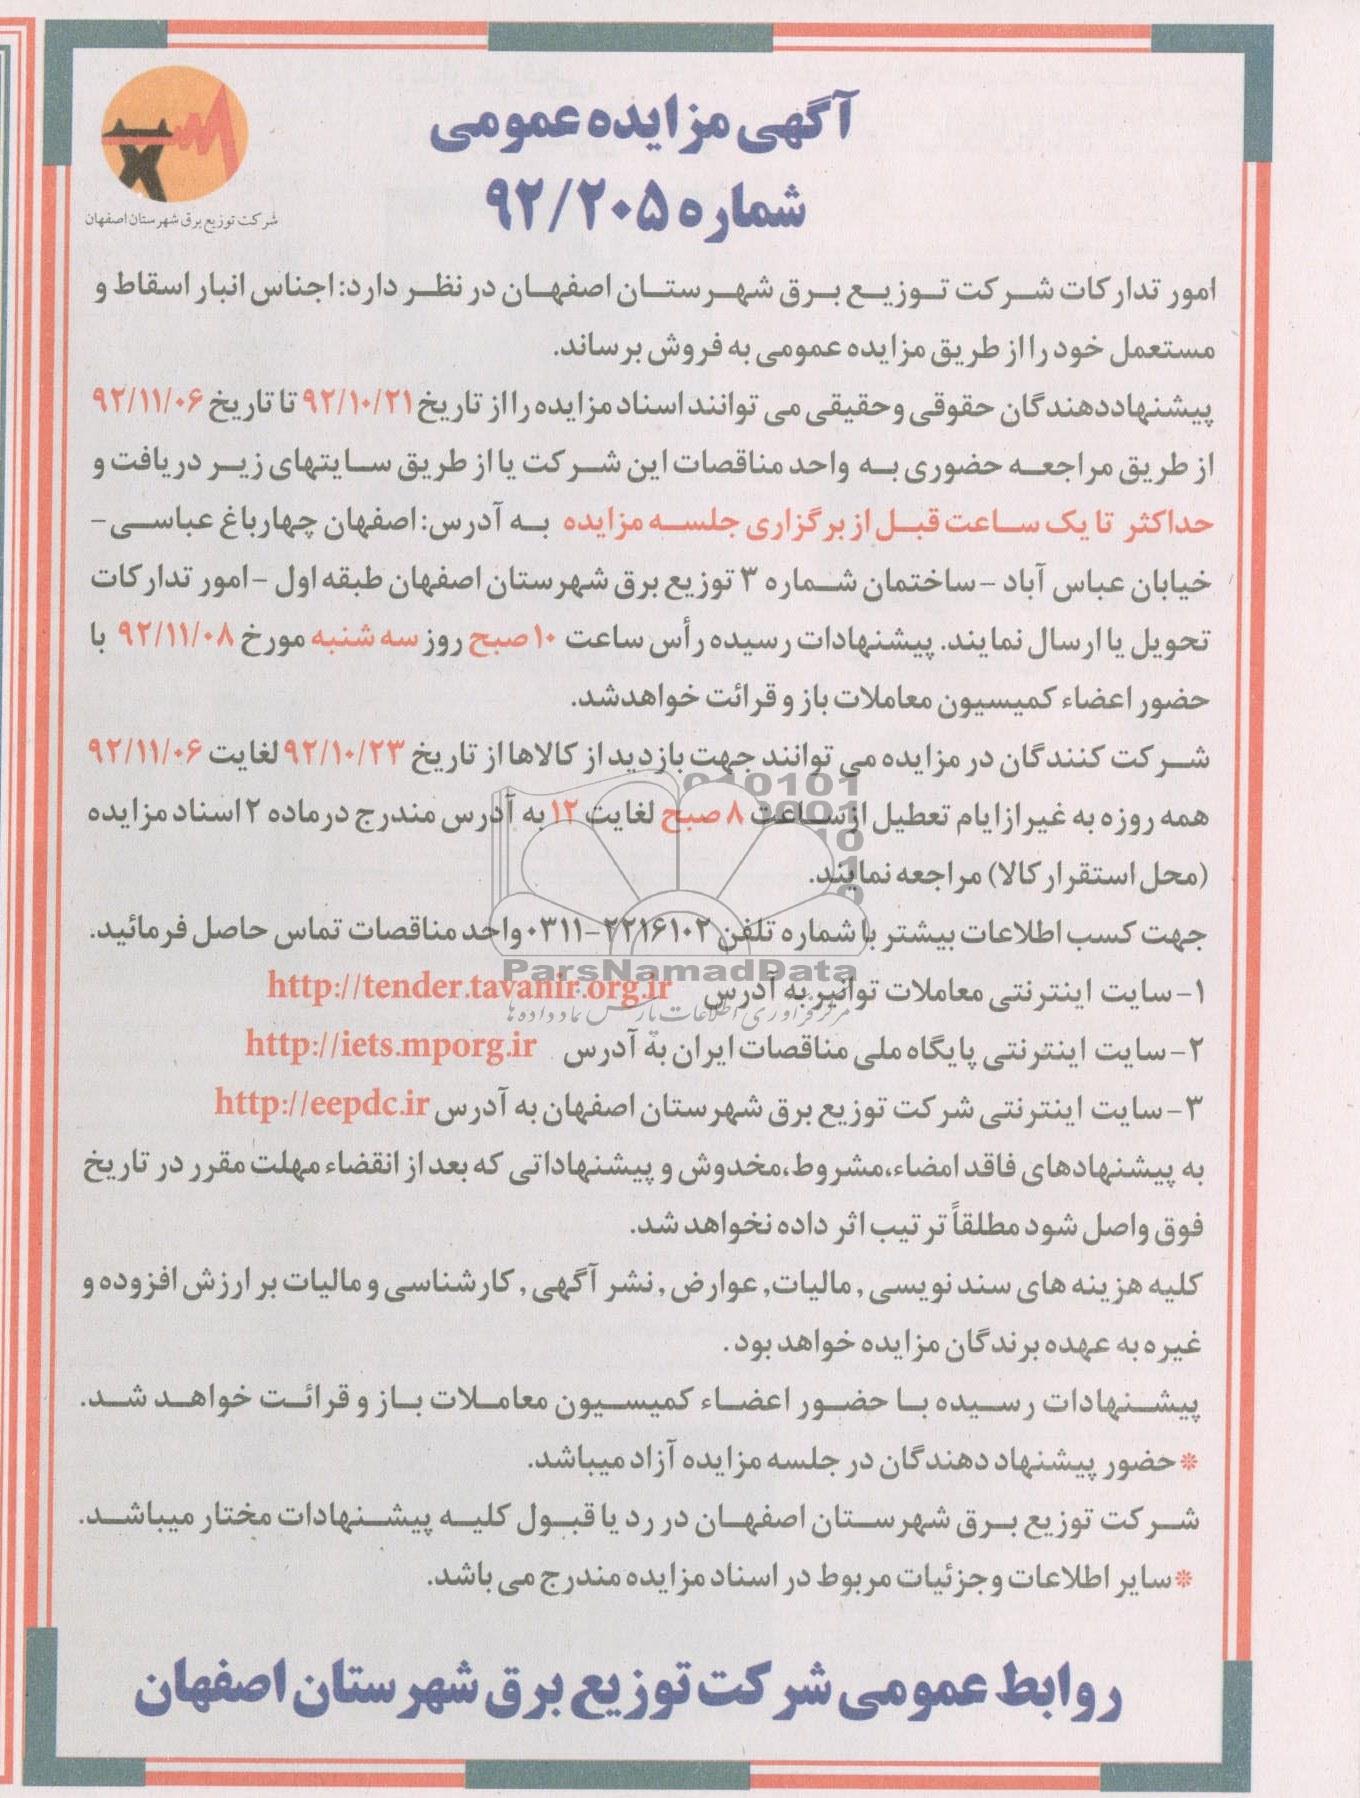 آگهی مزایده عمومی
شماره ۹۲/۲۰۵
شرکت توزیع برق شهرستان اصفهان
امور تدارکات شرکت توزیع برق شهرستان اصفهان در نظر دارد: اجناس انبار اسقاط و
مستعمل خود را از طریق مزایده عمومی به فروش برساند.
پیشنهاددهندگان حقوقی و حقیقی می توانند اسناد مزایده را از تاریخ ۹۲/۱۰/۲۱ تا تاریخ ۹۲/۱۱/۰۶
از طریق مراجعه حضوری به واحد مناقصات این شرکت یا از طریق سایتهای زیر دریافت و
حداکثر تا یک ساعت قبل از برگزاری جلسه مزایده به آدرس: اصفهان چهارباغ عباسی-
خیابان عباس آباد -ساختمان شماره ۳ توزیع برق شهرستان اصفهان طبقه اول -امور تدارکات
تحویل یا ارسال نمایند. پیشنهادات رسیده رأس ساعت ۱۰ صبح روز سه شنبه مورخ ۹۲/۱۱/۰۸ با
حضور اعضاء کمیسیون معاملات باز و قرائت خواهدشد.
شرکت کنندگان در مزایده می توانند جهت بازدید از کالاها از تاریخ ۹۲/۱۰/۲۳ لغایت ۹۲/۱۱/۰۶
همه روزه به غیر از ایام تعطیل از ساعت ۸ صبح لغایت ۱۲ به آدرس مندرج درماده ۲ اسناد مزایده
(محل استقرار کالا) مراجعه نمایند.
جهت کسب اطلاعات بیشتر با شماره تلفن ۲۲۱۶۱۰۲-۰۳۱۱ واحد مناقصات تماس حاصل فرمائید.
ParsNamadData
۱- سایت اینترنتی معاملات توانیر به آدرس http://tender.tavanir.org.ir
مرکز فرآوری اطلاعات پارس نماد داده ها
۲- سایت اینترنتی پایگاه ملی مناقصات ایران به آدرس http://iets.mporg.ir
۳- سایت اینترنتی شرکت توزیع برق شهرستان اصفهان به آدرس http://eepdc.ir
به پیشنهادهای فاقد امضاء،مشروط،مخدوش و پیشنهاداتی که بعد از انقضاء مهلت مقرر در تاریخ
فوق واصل شود مطلقاً ترتیب اثر داده نخواهد شد.
کلیه هزینه های سند نویسی , مالیات, عوارض , نشر آگهی , کارشناسی و مالیات بر ارزش افزوده و
غیره به عهده برندگان مزایده خواهد بود .
پیشنهادات رسیده با حضور اعضاء کمیسیون معاملات باز و قرائت خواهد شد.
* حضور پیشنهاد دهندگان در جلسه مزایده آزاد میباشد.
شرکت توزیع برق شهرستان اصفهان در رد یا قبول کلیه پیشنهادات مختار میباشد.
* سایر اطلاعات و جزئیات مربوط در اسناد مزایده مندرج می باشد.
روابط عمومی شرکت توزیع برق شهرستان اصفهان